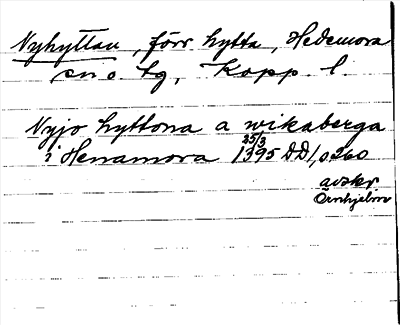 Nyhyttan, förr hytta, Hedemora
sn o tg, Kopp. l.
Nyjo hyttona a wikaberga
i Henamora 1395 25/3 DD 1, s 260
avskr.
Örnhjelm